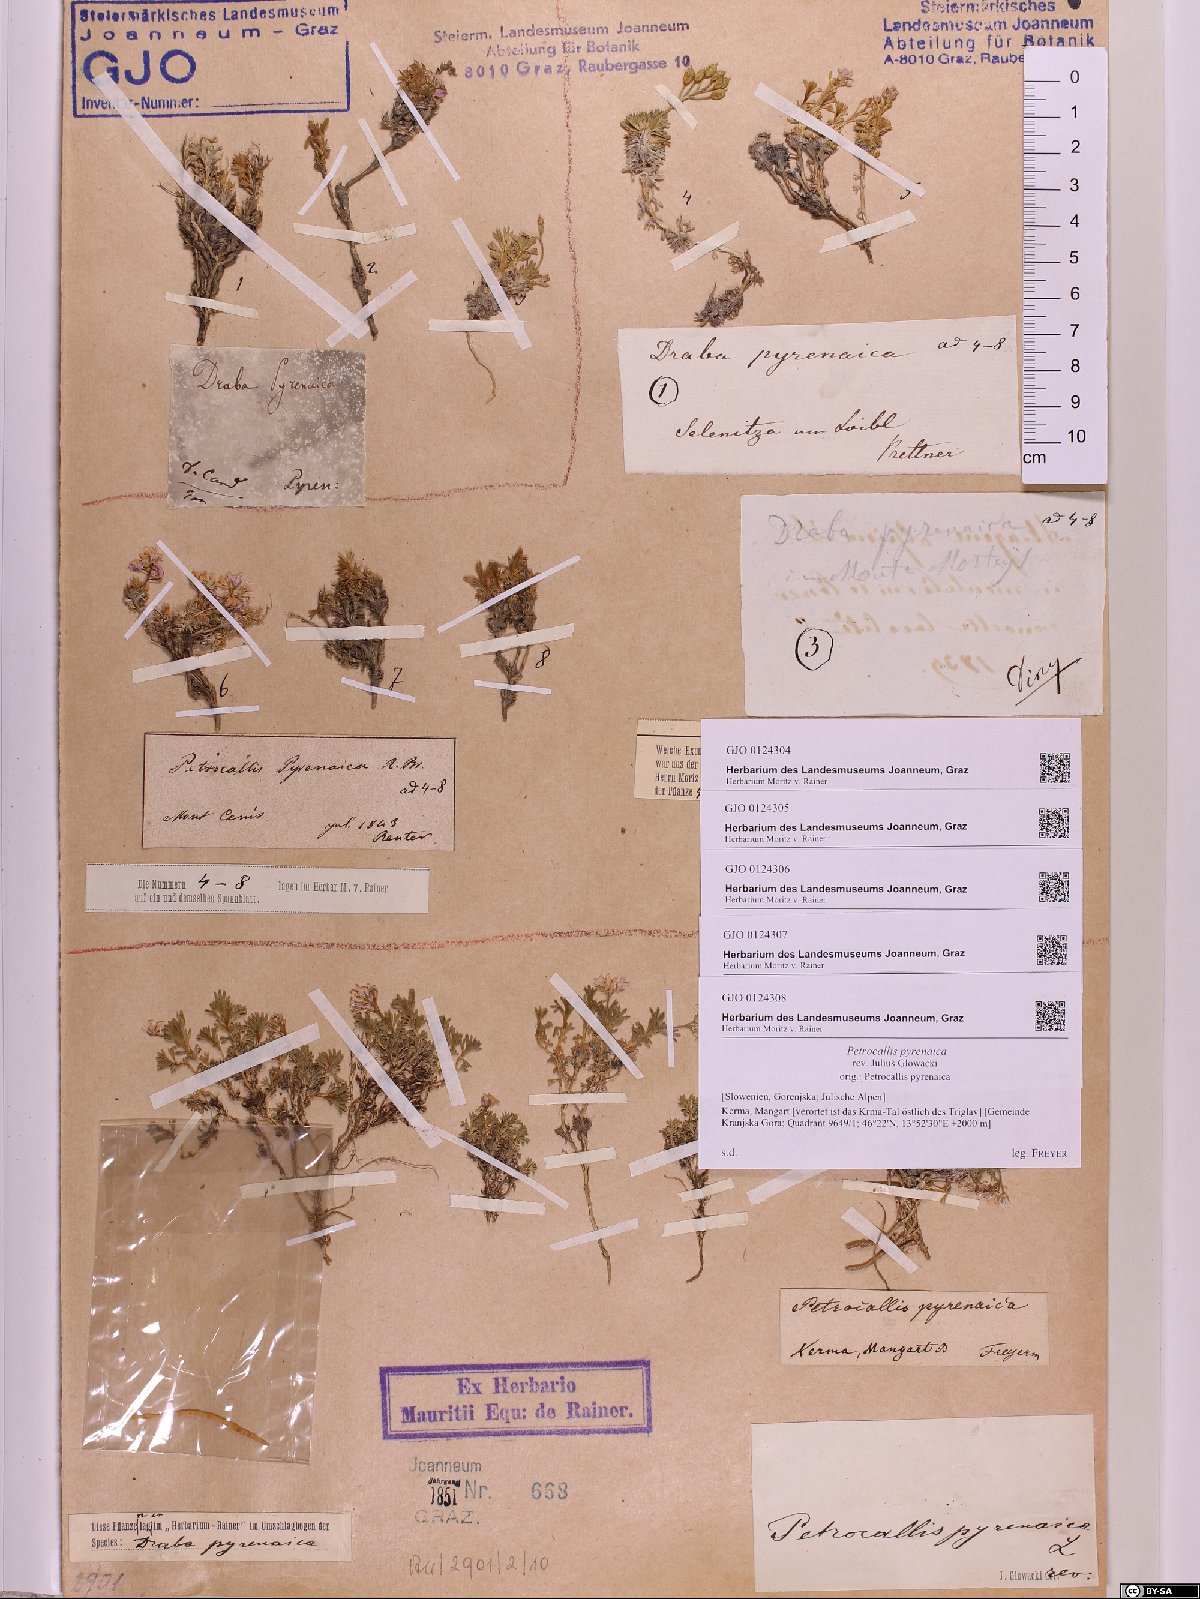 Steiermärkisches Landesmuseum
Joanneum - Graz
GJO
Inventar-Nummer:
Steierm. Landesmuseum Joanneum
Abteilung für Botanik
A-8010 Graz, Raubergasse 10
Steiermärkisches
Landesmuseum Joanneum
Abteilung für Botanik
A-8010 Graz, Raube
0
1
2
3
4
5
6
7
8
9
10
cm
1
2
4
5
Draba Pyrenaica
Pyren:
Draba pyrenaica ad 4-8
1
Selenitza am Loibl
Draba pyrenaica ad 4-8
in Monte
3
6
7
8
Petrocallis Pyrenaica R. Br.
ad 4-8
Mont Cenis jul. 1843
Reuter.
Die Nummern 4-8 lagen im Herbar M. v. Rainer
auf ein und demselben Spannblatt.
Welche
war aus der
Herrn Moriz
der Pflanze
GJO 0124304
Herbarium des Landesmuseums Joanneum, Graz
Herbarium Moritz v. Rainer
GJO 0124305
Herbarium des Landesmuseums Joanneum, Graz
Herbarium Moritz v. Rainer
GJO 0124306
Herbarium des Landesmuseums Joanneum, Graz
Herbarium Moritz v. Rainer
GJO 0124307
Herbarium des Landesmuseums Joanneum, Graz
Herbarium Moritz v. Rainer
GJO 0124308
Herbarium des Landesmuseums Joanneum, Graz
Herbarium Moritz v. Rainer
Petrocallis pyrenaica
rev. Julius Glowacki
orig.: Petrocallis pyrenaica
[Slowenien, Gorenjska; Julische Alpen]
Kerma, Mangart [verortet ist das Krma-Tal östlich des Triglav] [Gemeinde
Kranjska Gora; Quadrant 9649/1; 46°22'N, 13°52'30"E +2000 m]
s.d. leg. FREYER
Petrocallis pyrenaica
Kerma, Mangart
Ex Herbario
Mauritii Equ: de Rainer.
Joanneum
Jahrgang
1851 Nr. 668
GRAZ.
Petrocallis pyrenaica
L
rev:
Diese Pflanze lag im „Herbarium-Rainer" in Umschlagbogen der
Species: Draba pyrenaica
2901/2/10
2901
CC BY-SA